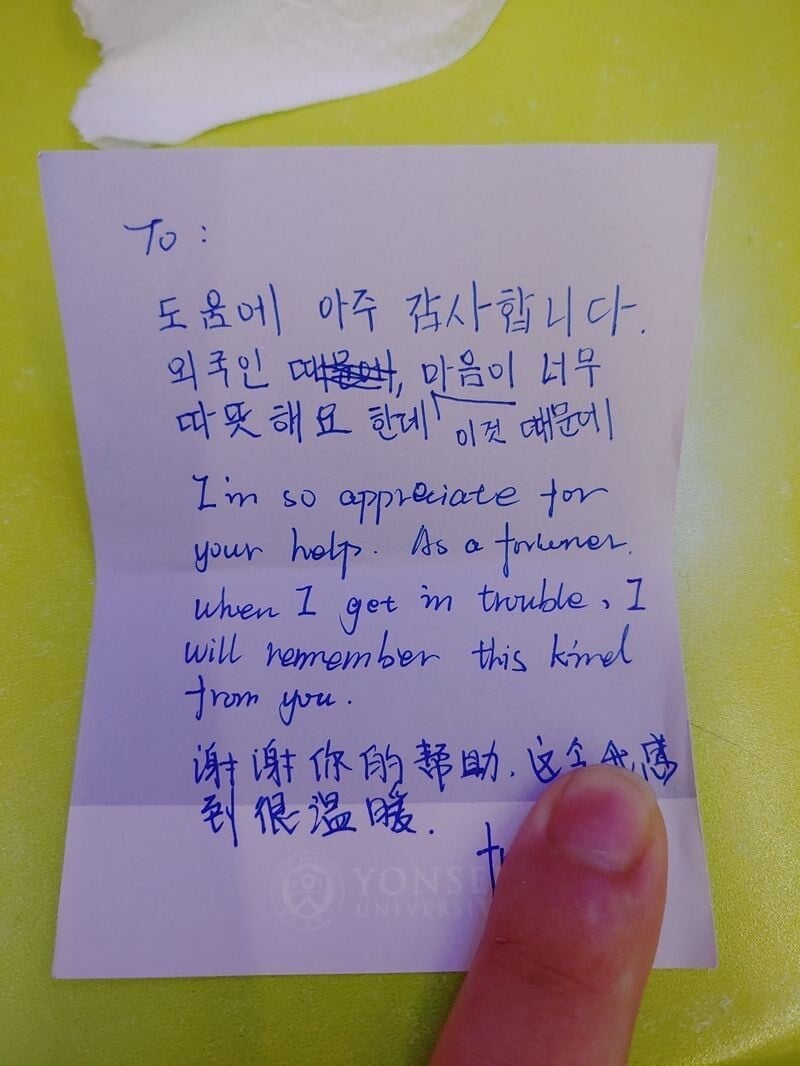 To :
도움에 아주 감사합니다.
외국인 , 마음이 너무
따뜻해요 한데 이것 때문에
I'm so appreciate for
your help. As a foriener.
when I get in trouble, I
will remember this kind
from you.
谢谢你的帮助.这令我感
到很温暖.
YONSE
UNIVERSI